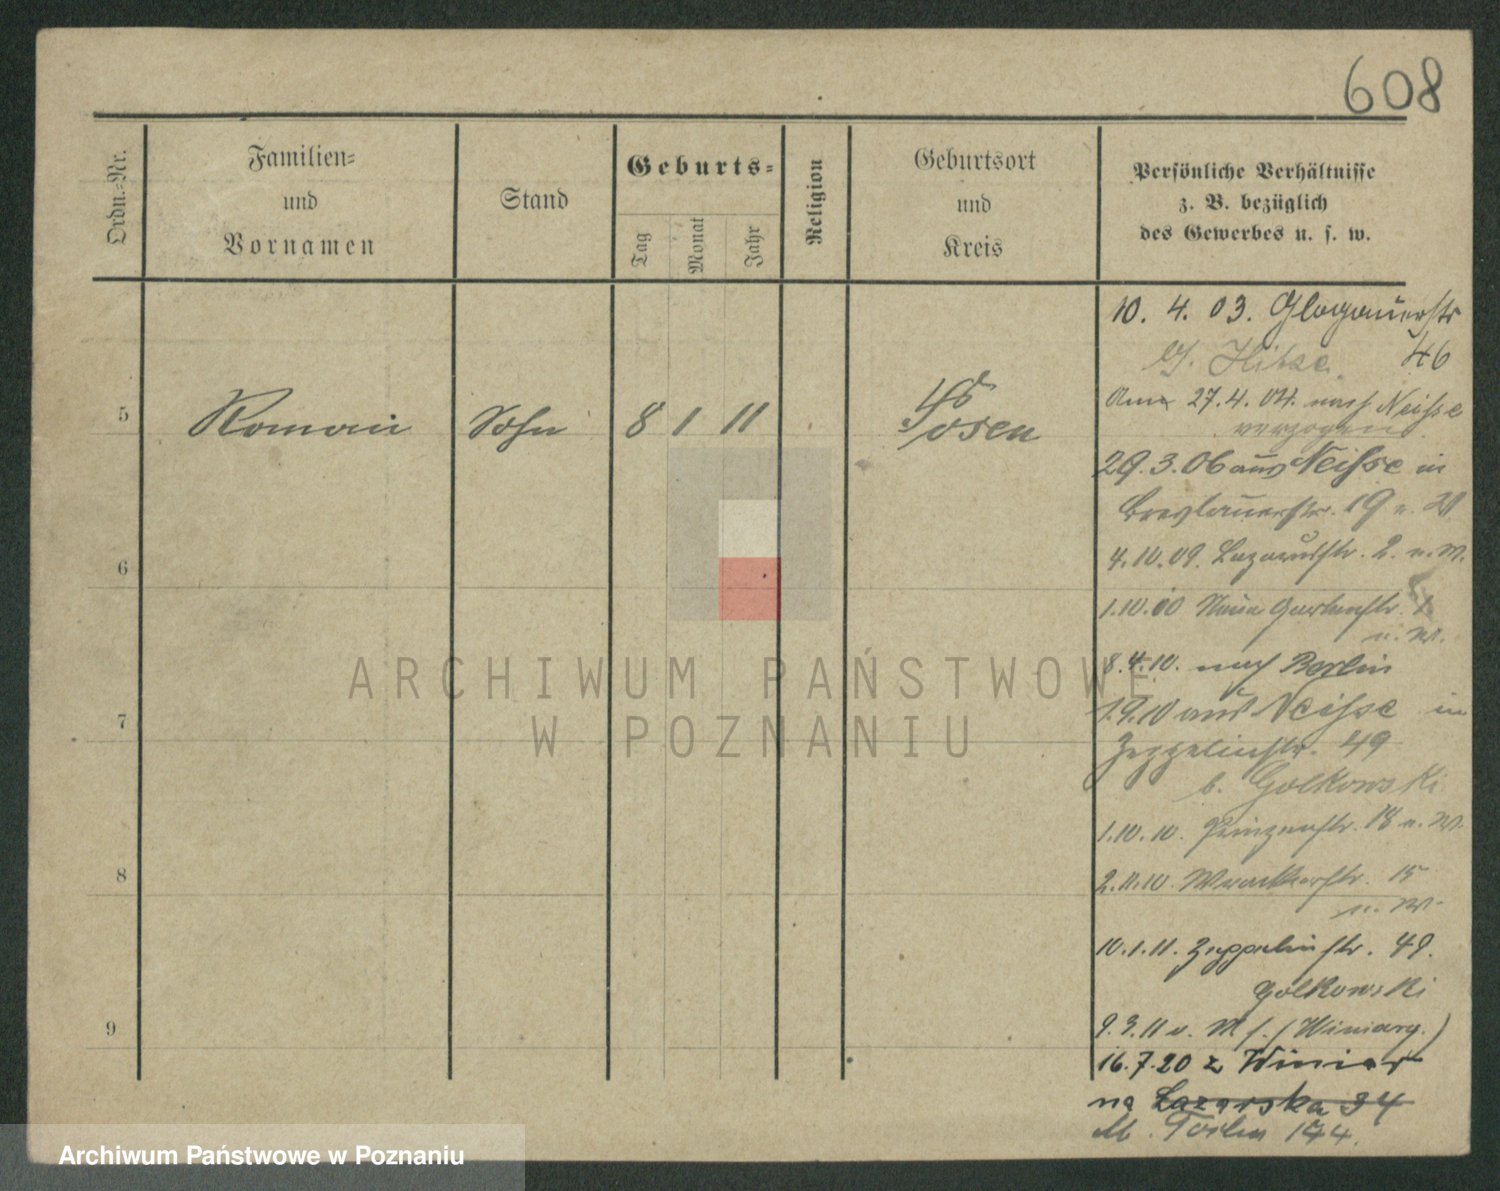 608
Ordn.-Nr.
Familien-
und
Vornamen
Stand
Geburts-
Tag
Monat
Jahr
Religion
Geburtsort
und
Kreis
Persönliche Verhältnisse
z. B. bezüglich
des Gewerbes u. s. w.
5 Roman Sohn 8 1 11 Posen
6
7
8
9
10. 4. 03. Glogauerstr
46
27.4.04. nach Neisse
verzogen
29.3.06 aus Neisse in
Breslauerstr. 19
4.10.09. Lazarusstr. 2. u. W.
1.10.00 Neue Gartenstr.
u. W.
8.4.10. nach Berlin
1.9.10 aus Neisse in
Zeppelinstr. 49
b. Golkowski
1.10.10. Prinzenstr. 18 u. W.
2.11.10. 15
u. W.
10.1.11. Zeppelinstr. 49.
Golkowski
9.3.11 (Winiary.)
16.7.20 z Winiar
na Lazarska 34
144.
ARCHIWUM PAŃSTWOWE
W POZNANIU
Archiwum Państwowe w Poznaniu